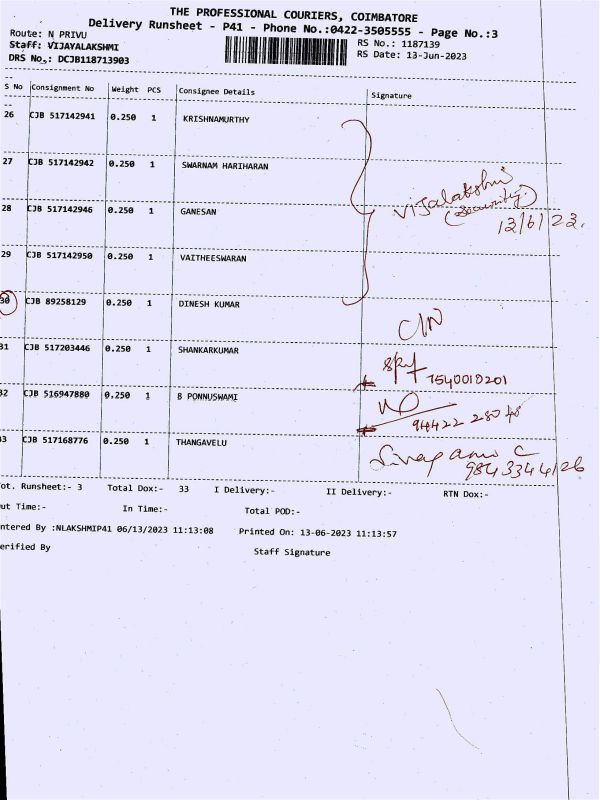 THE PROFESSIONAL COURIERS, COIMBATORE
Delivery Runsheet - P41 - Phone No.:0422-3505555 - Page No.:3
Route: N PRIVU
RS No.: 1187139
Staff: VIJAYALAKSHMI
RS Date: 13-Jun-2023
DRS No,: DCJB118713903
S No Consignment No Weight PCS Consignee Details Signature
26 CJB 517142941 0.250 1 KRISHNAMURTHY
27 CJB 517142942 0.250 1 SWARNAM HARIHARAN
Vijalakshmi
(Security)
28 CJB 517142946 0.250 1 GANESAN
13/6/23.
29 CJB 517142950 0.250 1 VAITHEESWARAN
30 CJB 89258129 0.250 1 DINESH KUMAR
C/N
31 CJB 517203446 0.250 1 SHANKARKUMAR
7540010201
32 CJB 516947880 0.250 1 B PONNUSWAMI
94422 280
33 CJB 517168776 0.250 1 THANGAVELU
9843344126
ot. Runsheet:- 3 Total Dox:- 33 I Delivery:- II Delivery:- RTN Dox:-
ut Time:- In Time:- Total POD:-
ntered By :NLAKSHMIP41 06/13/2023 11:13:08 Printed On: 13-06-2023 11:13:57
erified By Staff Signature